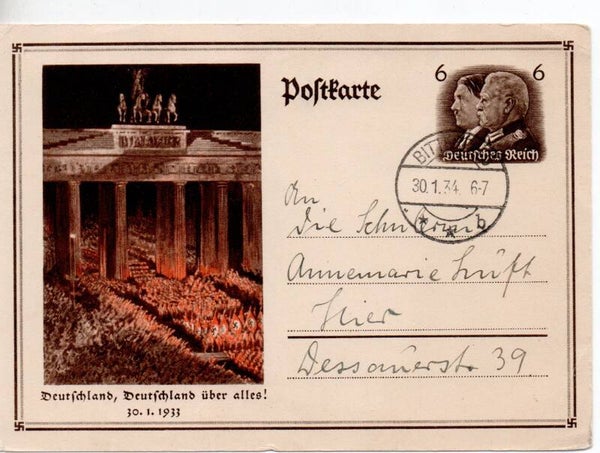 Postkarte
6 6
Deutsches Reich
BIT
30.1.34. 6-7
* * b
An
Die Schülerin
Annemarie
Hier
Dessauerstr. 39.
Deutschland, Deutschland über alles!
30. 1. 1933